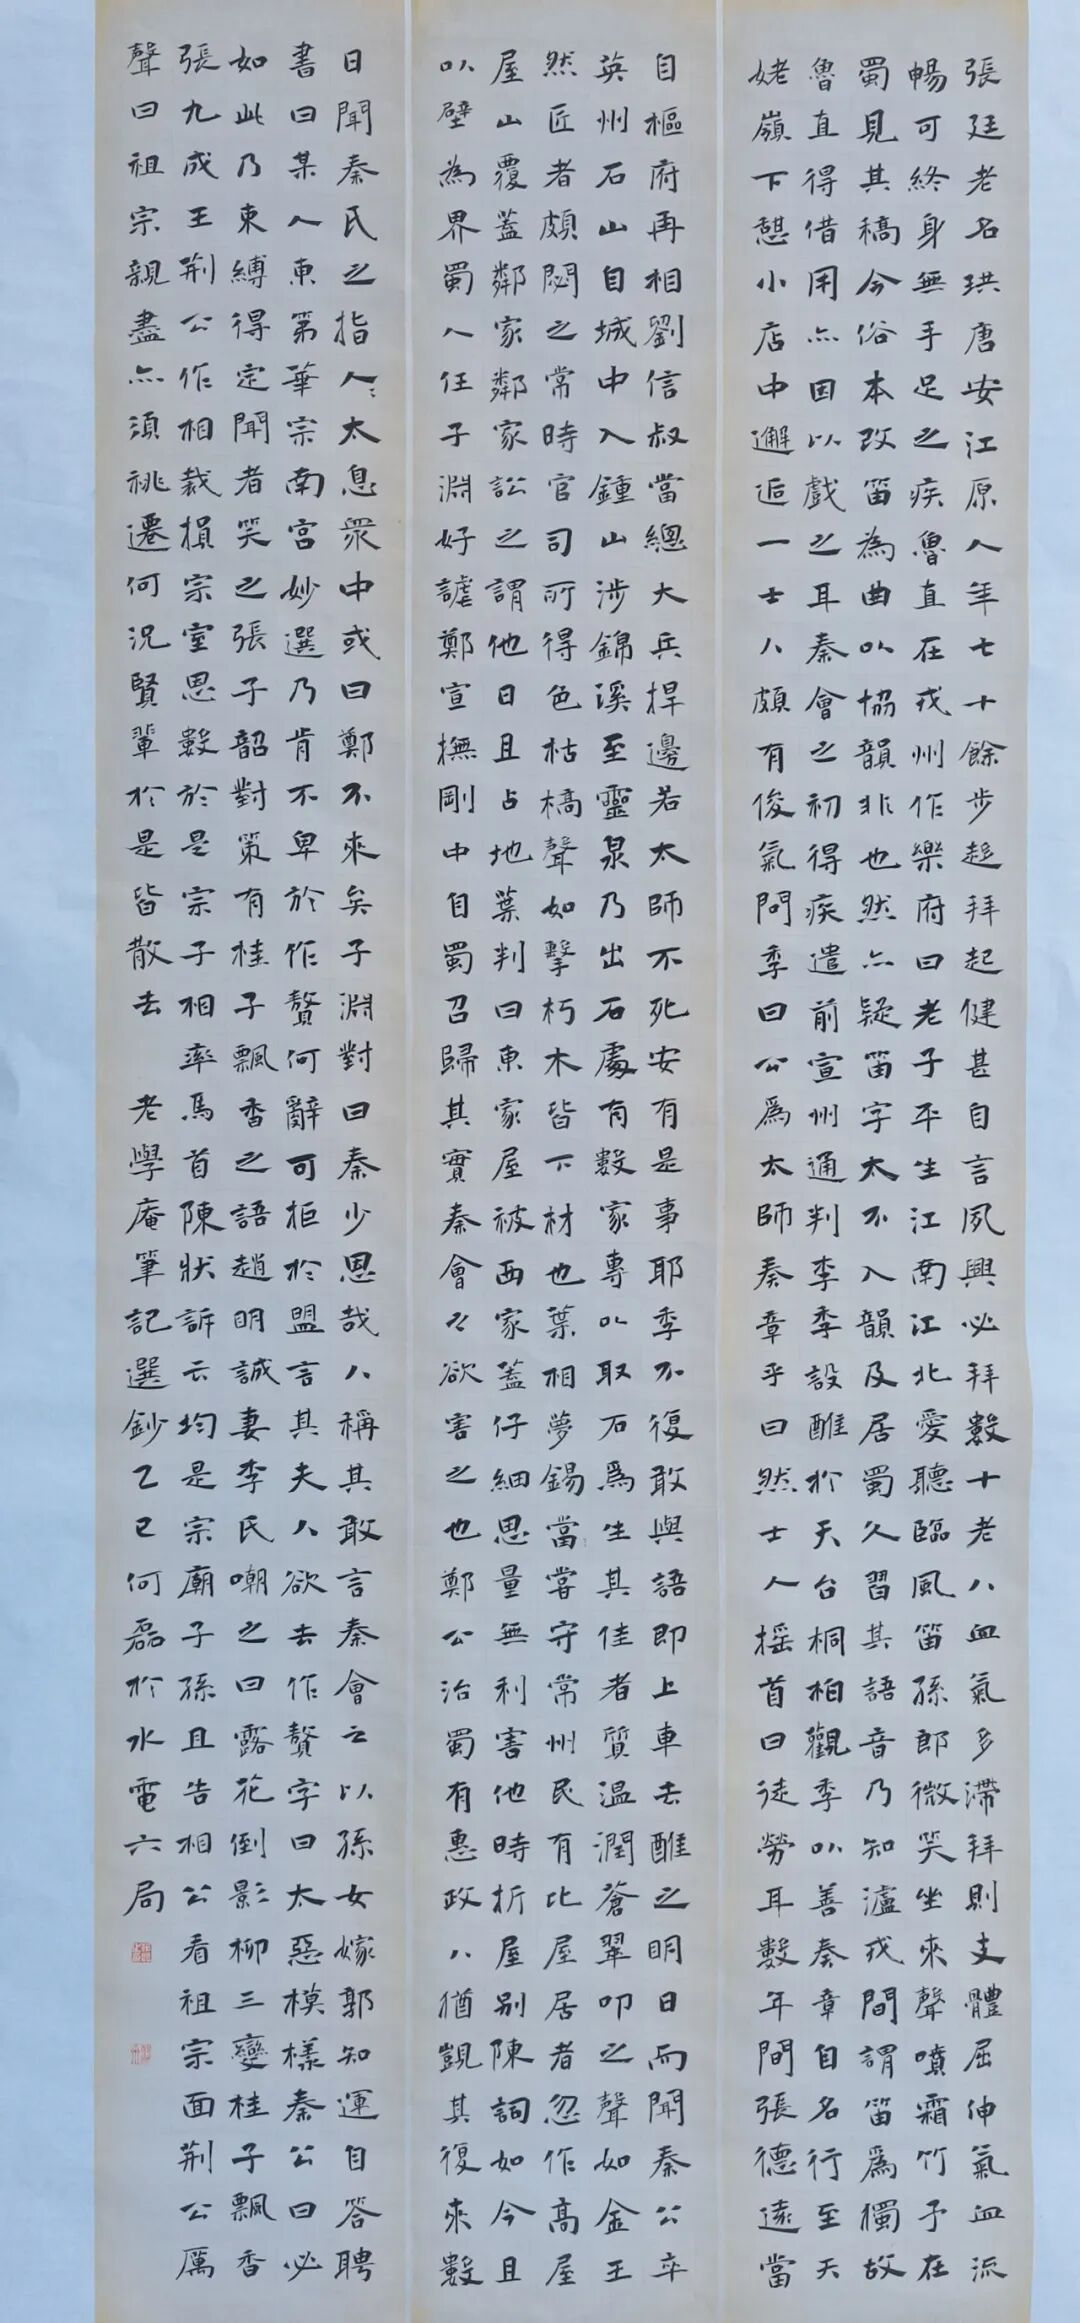 張廷老名珙唐安江原人年七十餘步趍拜起健甚自言夙興必拜數十老人血氣多滯拜則支體屈伸氣血流
暢可終身無手足之疾魯直在戎州作樂府曰老子平生江南江北愛聽臨風笛孫郎微笑坐來聲噴霜竹予在
蜀見其稿今俗本改笛為曲以協韻非也然亦疑笛字太不入韻及居蜀久習其語音乃知瀘戎間謂笛為獨故
魯直得借用亦因以戲之耳秦會之初得疾遣前宣州通判李季設醮於天台桐柏觀季以善奏章自名行至天
姥嶺下憇小店中邂逅一士人頗有俊氣問季曰公為太師奏章乎曰然士人搖首曰徒勞耳數年間張德遠當
自樞府再相劉信叔當總大兵捍邊若太師不死安有是事耶季不復敢與語即上車去醮之明日而聞秦公卒
英州石山自城中入鍾山涉錦溪至靈泉乃出石處有數家專以取石為生其佳者質溫潤蒼翠叩之聲如金玉
然匠者頗閟之常時官司所得色枯槁聲如擊朽木皆下材也葉相夢錫當嘗守常州民有比屋居者忽作高屋
屋山覆蓋鄰家鄰家訟之謂他日且占地葉判曰東家屋被西家蓋仔細思量無利害他時折屋別陳詞如今且
以壁為界蜀人任子淵好謔鄭宣撫剛中自蜀召歸其實秦會之欲害之也鄭公治蜀有惠政人猶覬其復來數
日聞秦氏之指人〻太息衆中或曰鄭不來矣子淵對曰秦少恩哉人稱其敢言秦會之以孫女嫁郭知運自答聘
書曰某人東第華宗南宮妙選乃肯不卑於作贅何辭可拒於盟言其夫人欲去作贅字曰太惡模樣秦公曰必
如此乃束縛得定聞者笑之張子韶對策有桂子飄香之語趙明誠妻李氏嘲之曰露花倒影柳三變桂子飄香
張九成王荆公作相裁損宗室恩數於是宗子相率馬首陳狀訴云均是宗廟子孫且告相公看祖宗面荆公厲
聲曰祖宗親盡亦須祧遷何況賢輩於是皆散去 老學庵筆記選鈔乙巳何磊於水電六局